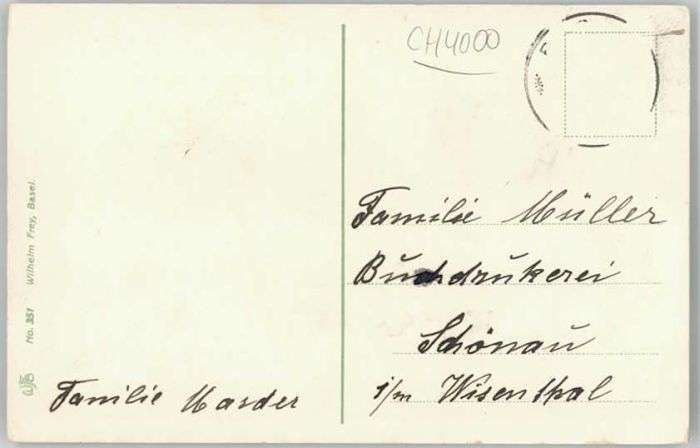 CH4000
No. 351 Wilhelm Frey, Basel.
Familie Marder
Familie Müller
Buchdrukerei
Schönau
i/m Wisenthal